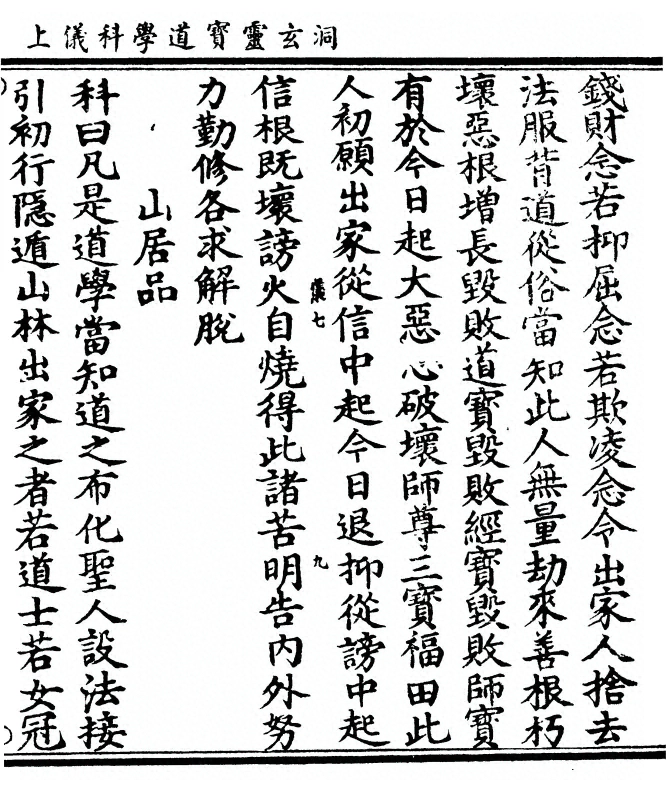 洞玄靈寶道學科儀上
錢財念若抑屈念若欺凌念令出家人捨去
法服背道從俗當知此人無量劫來善根朽
壞惡根增長毀敗道寶毀敗經寶毀敗師寶
有於今日起大惡心破壞師尊三寶福田此
人初願出家從信中起今日退抑從謗中起
儀七 九
信根既壞謗火自燒得此諸苦明告內外努
力勤修各求解脫
山居品
科曰凡是道學當知道之布化聖人設法接
引初行隱遁山林出家之者若道士若女冠